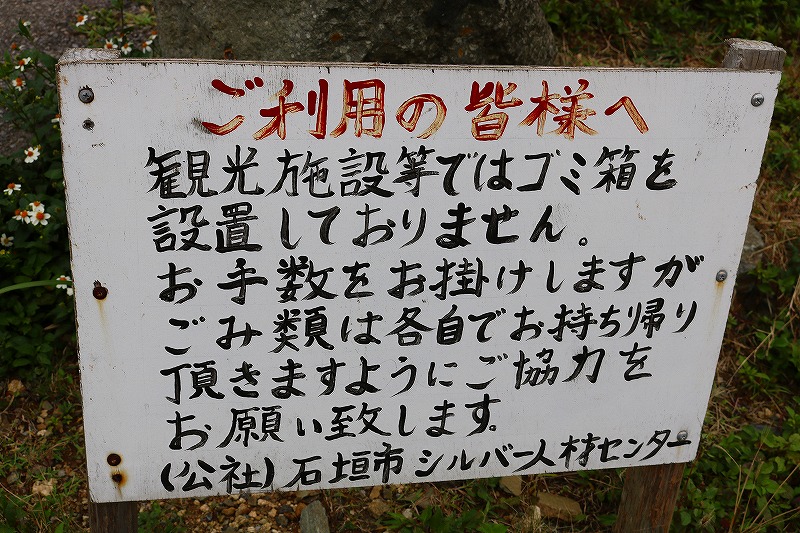 ご利用の皆様へ
観光施設等ではゴミ箱を
設置しておりません。
お手数をお掛けしますが
ごみ類は各自でお持ち帰り
頂きますようにご協力を
お願い致します。
(公社)石垣市シルバー人材センター